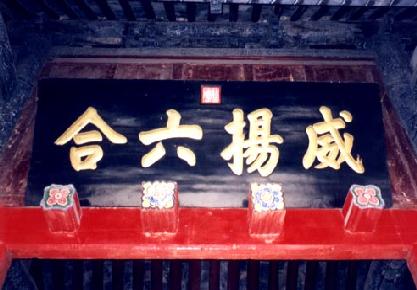 威揚六合